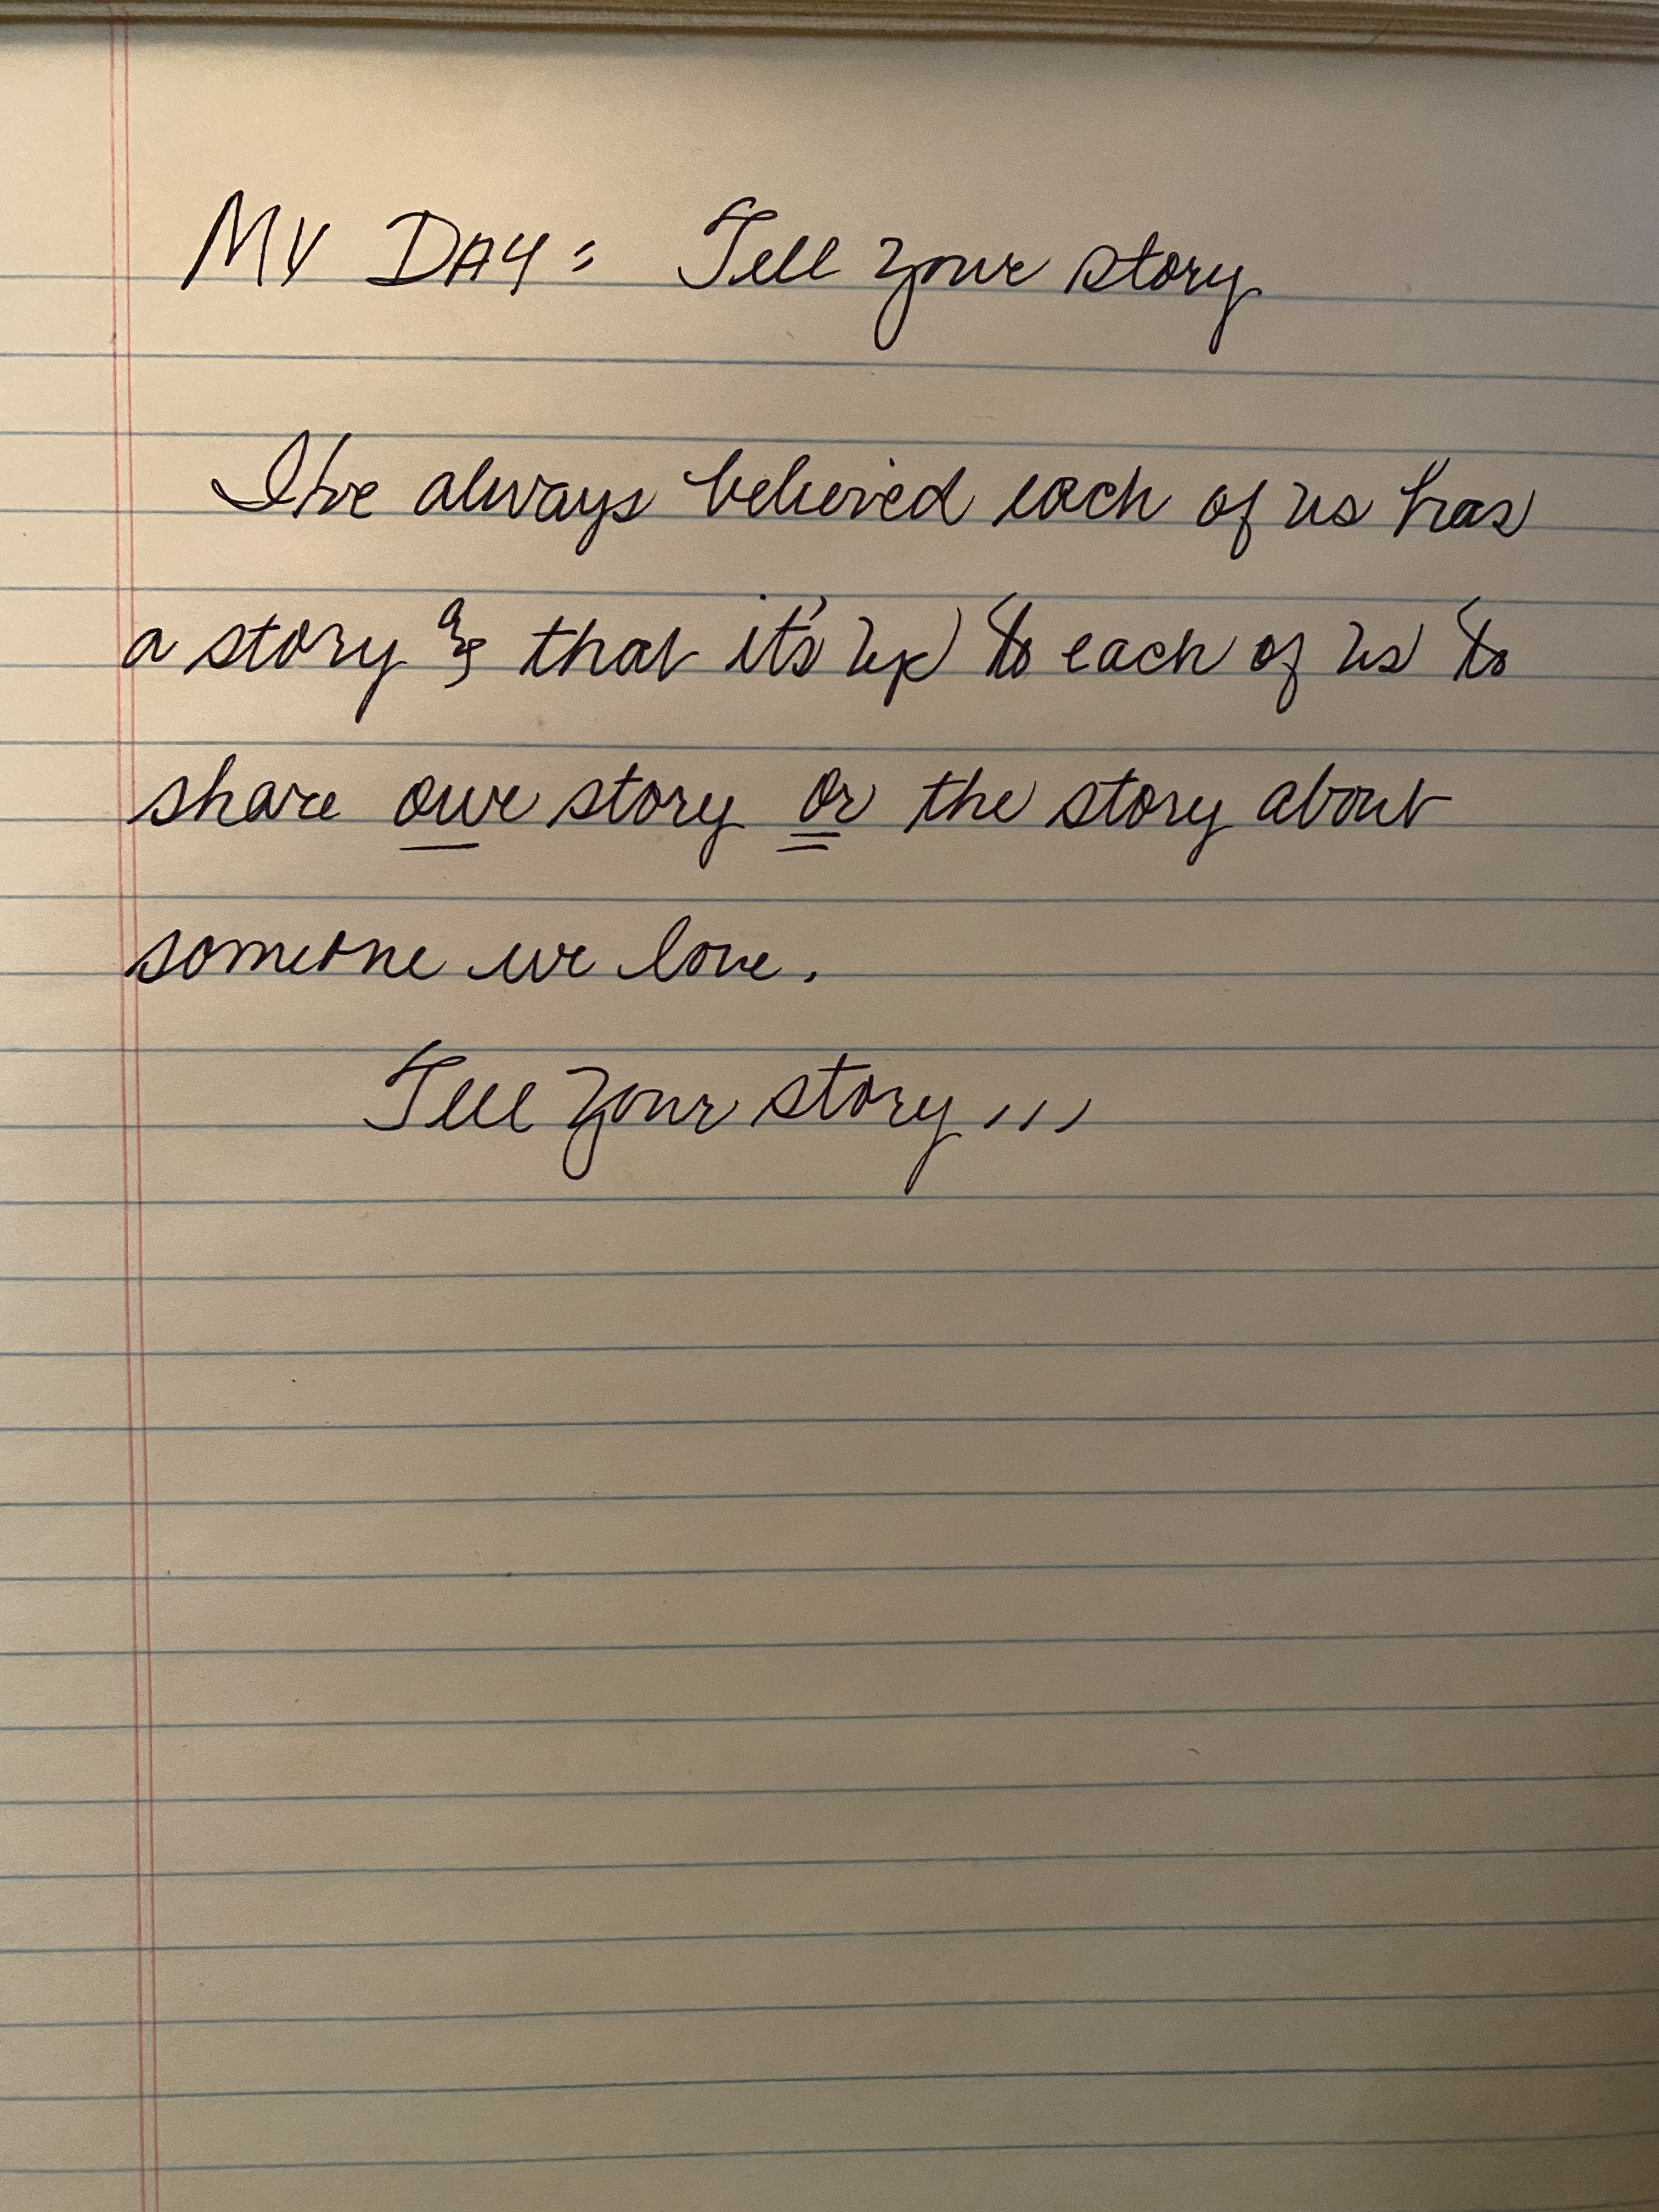 MY DAY: Tell your story
I've always believed each of us has
a story & that it's up to each of us to
share our story or the story about
someone we love.
Tell your story...